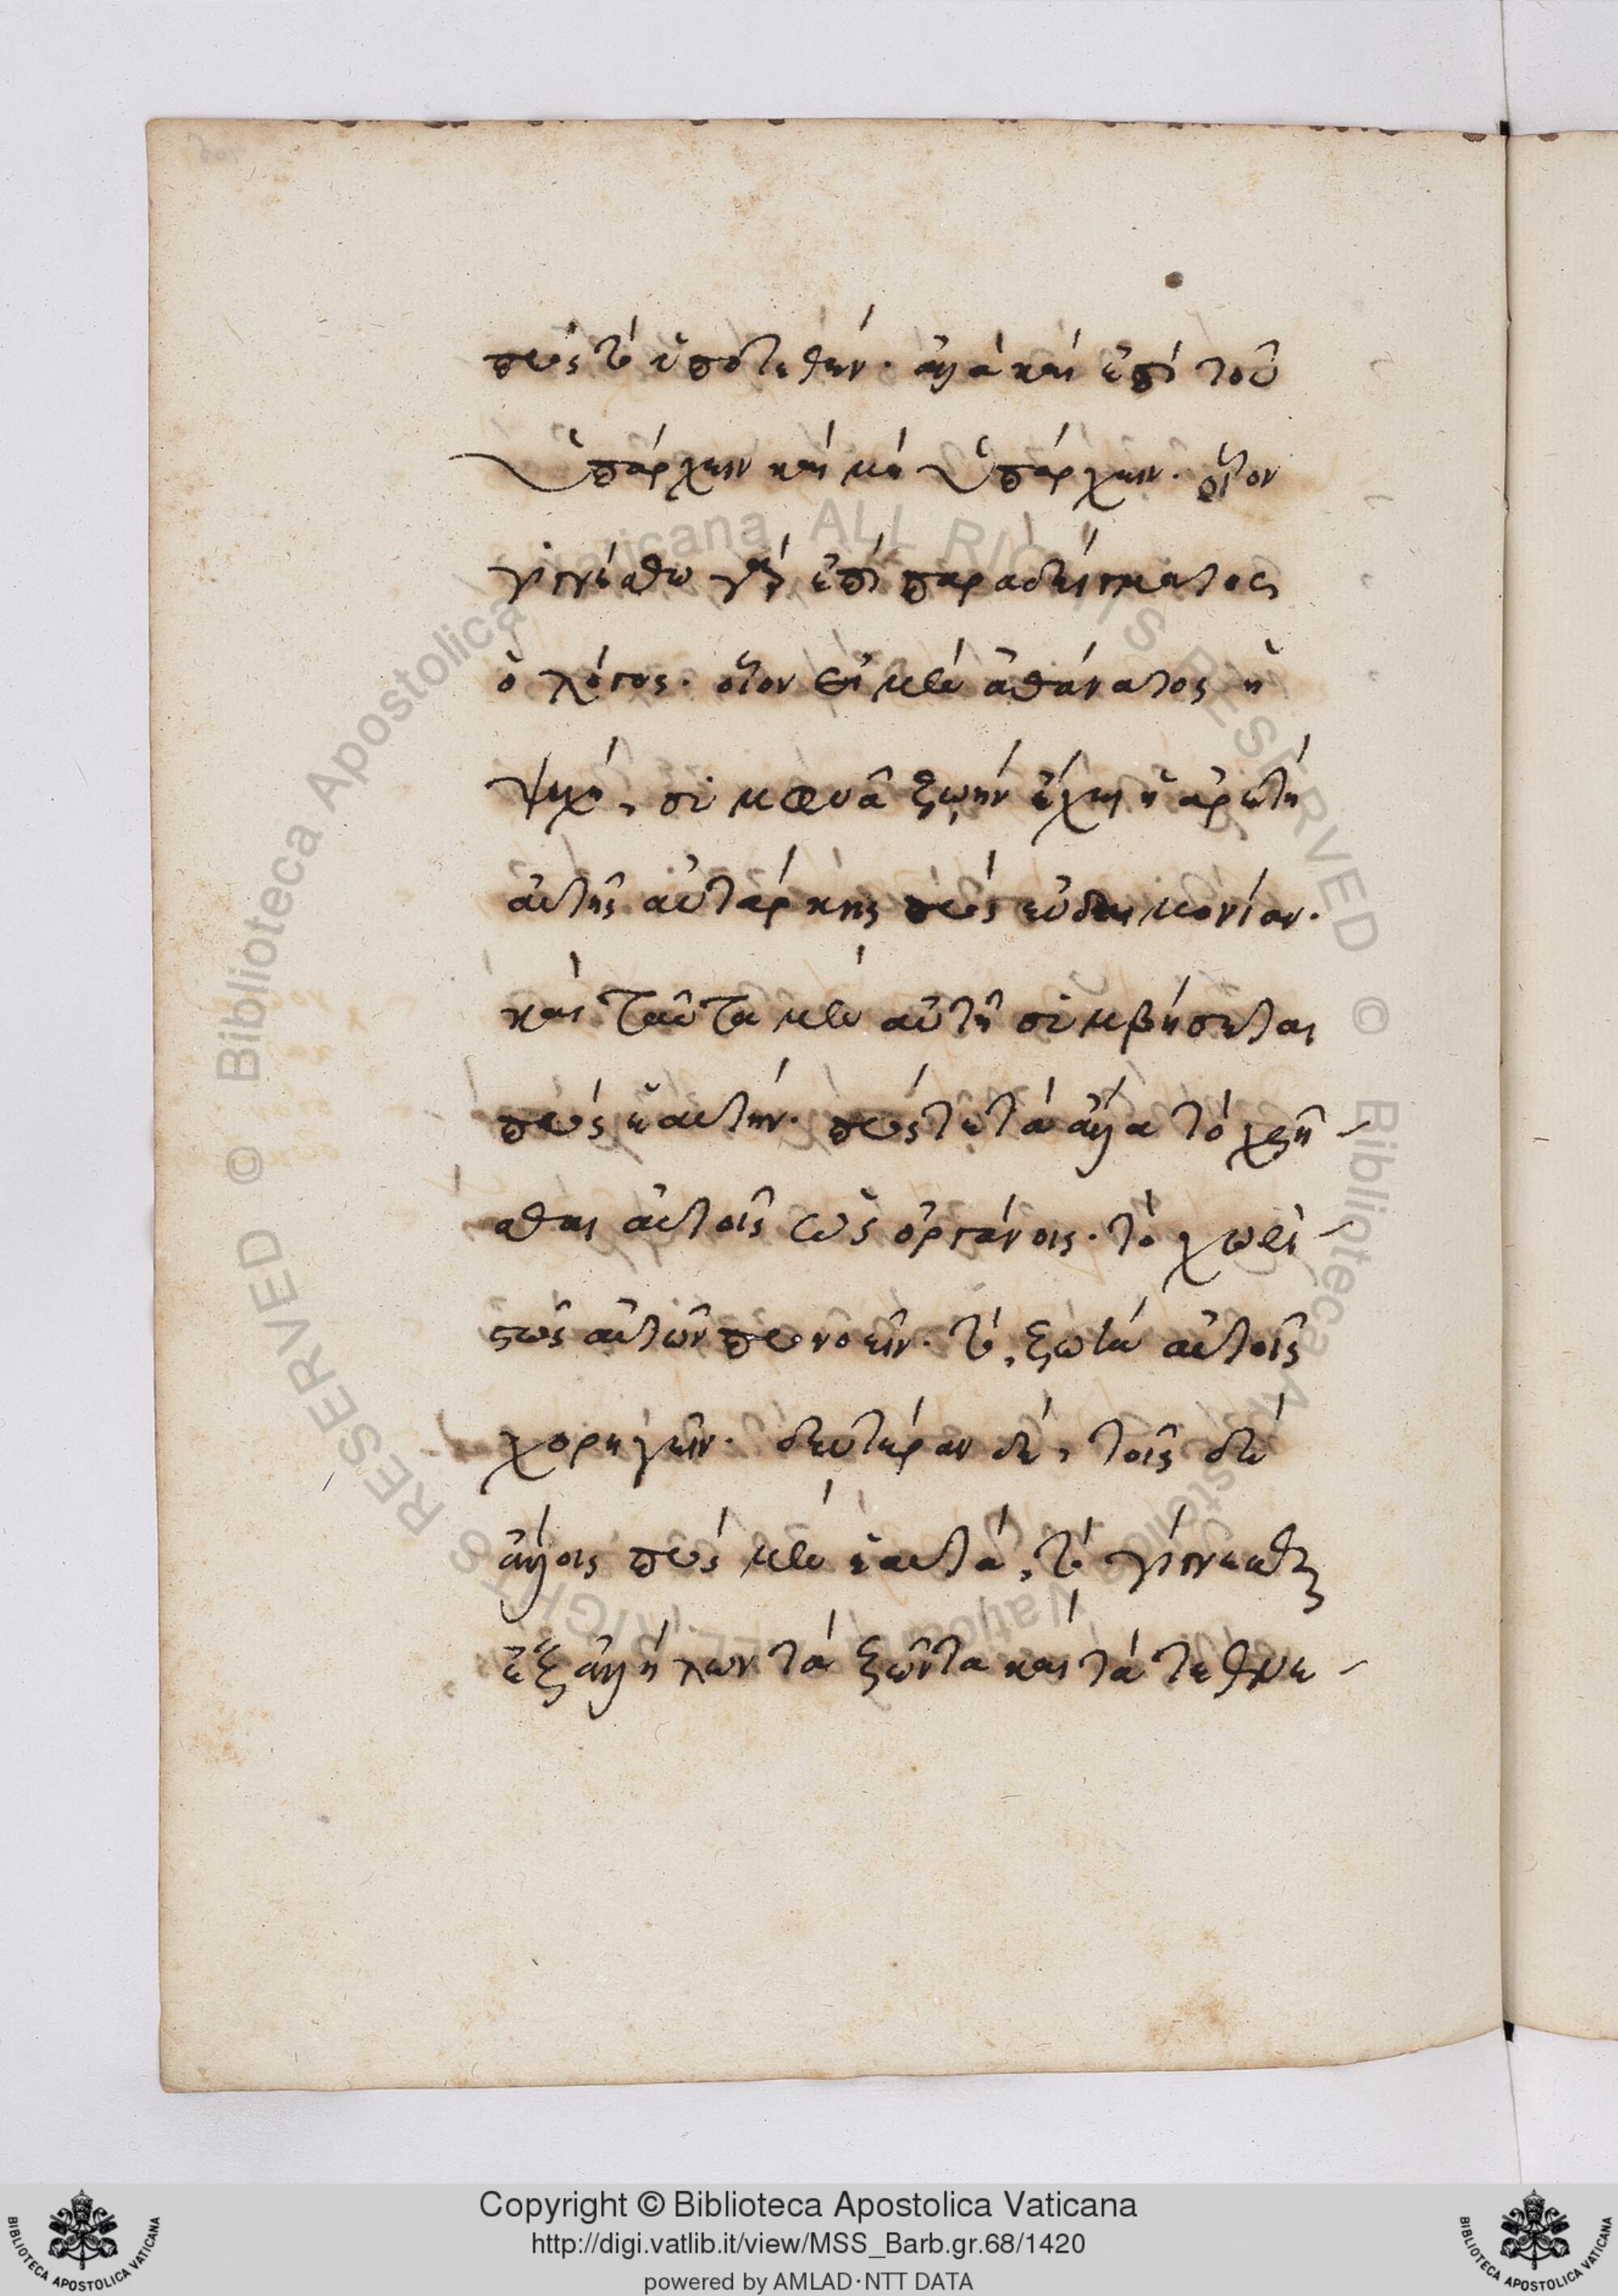 πρὸς τὸ ὑποτεθέν. ἀλλὰ καὶ ἐπὶ τοῦ
ὑπάρχειν καὶ μὴ ὑπάρχειν. οἷον
γιγνέσθω γὰρ ἐπὶ παραδείγματος
ὁ λόγος. οἷον εἰ μὲν ἀθάνατος ἡ
ψυχή, ζωὴν ἔχει ἡ ἀρετὴ
αὐτῆς αὐτάρκης πρὸς εὐδαιμονίαν.
καὶ ταῦτα μὲν αὐτῇ συμβήσεται
πρὸς ἑαυτήν. πρὸς τε τὰ ἄλλα τὸ χρῆ
σθαι αὐτοῖς ὡς ὀργάνοις. τὸ χωρι
στῶς αὐτῶν προνοεῖν. τὸ, ζωὴν αὐτοῖς
χορηγεῖν. δεύτερον δέ, τοῖς δὲ
ἄλλοις πρὸς μὲν ἑαυτά, τὸ γίγνεσθαι
ἐξ ἀλλήλων τὰ ζῶντα καὶ τὰ τεθνε
Copyright © Biblioteca Apostolica Vaticana
http://digi.vatlib.it/view/MSS_Barb.gr.68/1420
powered by AMLAD·NTT DATA
BIBLIOTECA APOSTOLICA VATICANA
BIBLIOTECA APOSTOLICA VATICANA
© Biblioteca Apostolica Vaticana ALL RIGHTS RESERVED
© Biblioteca Apostolica Vaticana ALL RIGHTS RESERVED